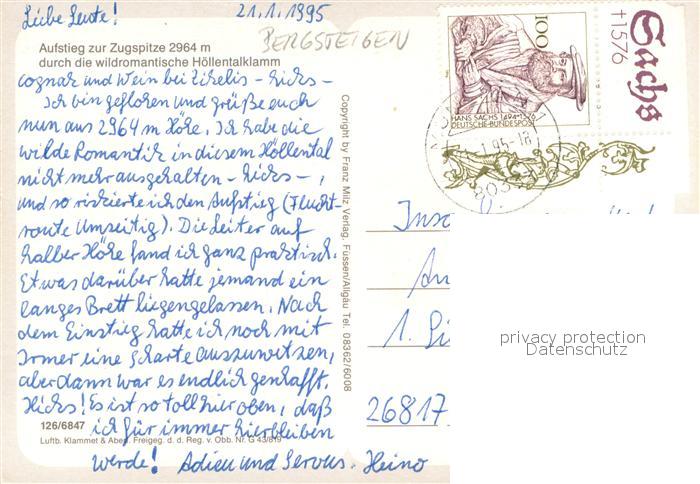 Liebe Leute! 21.1.1995
BERGSTEIGEN
Aufstieg zur Zugspitze 2964 m
durch die wildromantische Höllentalklamm
cognak und Wein bei Zikelis - hicks -
Ich bin geflohen und grüße euch
nun aus 2964 m Höhe. Ich habe die
wilde Romantik in diesem Höllental
nicht mehr ausgehalten - hicks -,
und so riskierte ich den Aufstieg (Flucht-
route Umseitig). Die Leiter auf
halber Höhe fand ich ganz praktisch.
Etwas darüber hatte jemand ein
langes Brett liegengelassen. Nach
dem Einstieg hatte ich noch mit
Irmer eine Scharte auszuwetzen,
aber dann war es endlich geschafft.
Hicks! Es ist so toll hier oben, daß
ich für immer hierbleiben
werde! Adieu und Servus. Heino
126/6847
Luftb. Klammet & Aberl Freigeg. d. d. Reg. v. Obb. Nr. G 43/819
Copyright by Franz Milz Verlag, Füssen/Allgäu Tel. 08362/6008
100
HANS SACHS 1494-1576
DEUTSCHE BUNDESPOST
Sachs
†1576
.1.95-18
803
Inse
An
1.
26817
privacy protection
Datenschutz